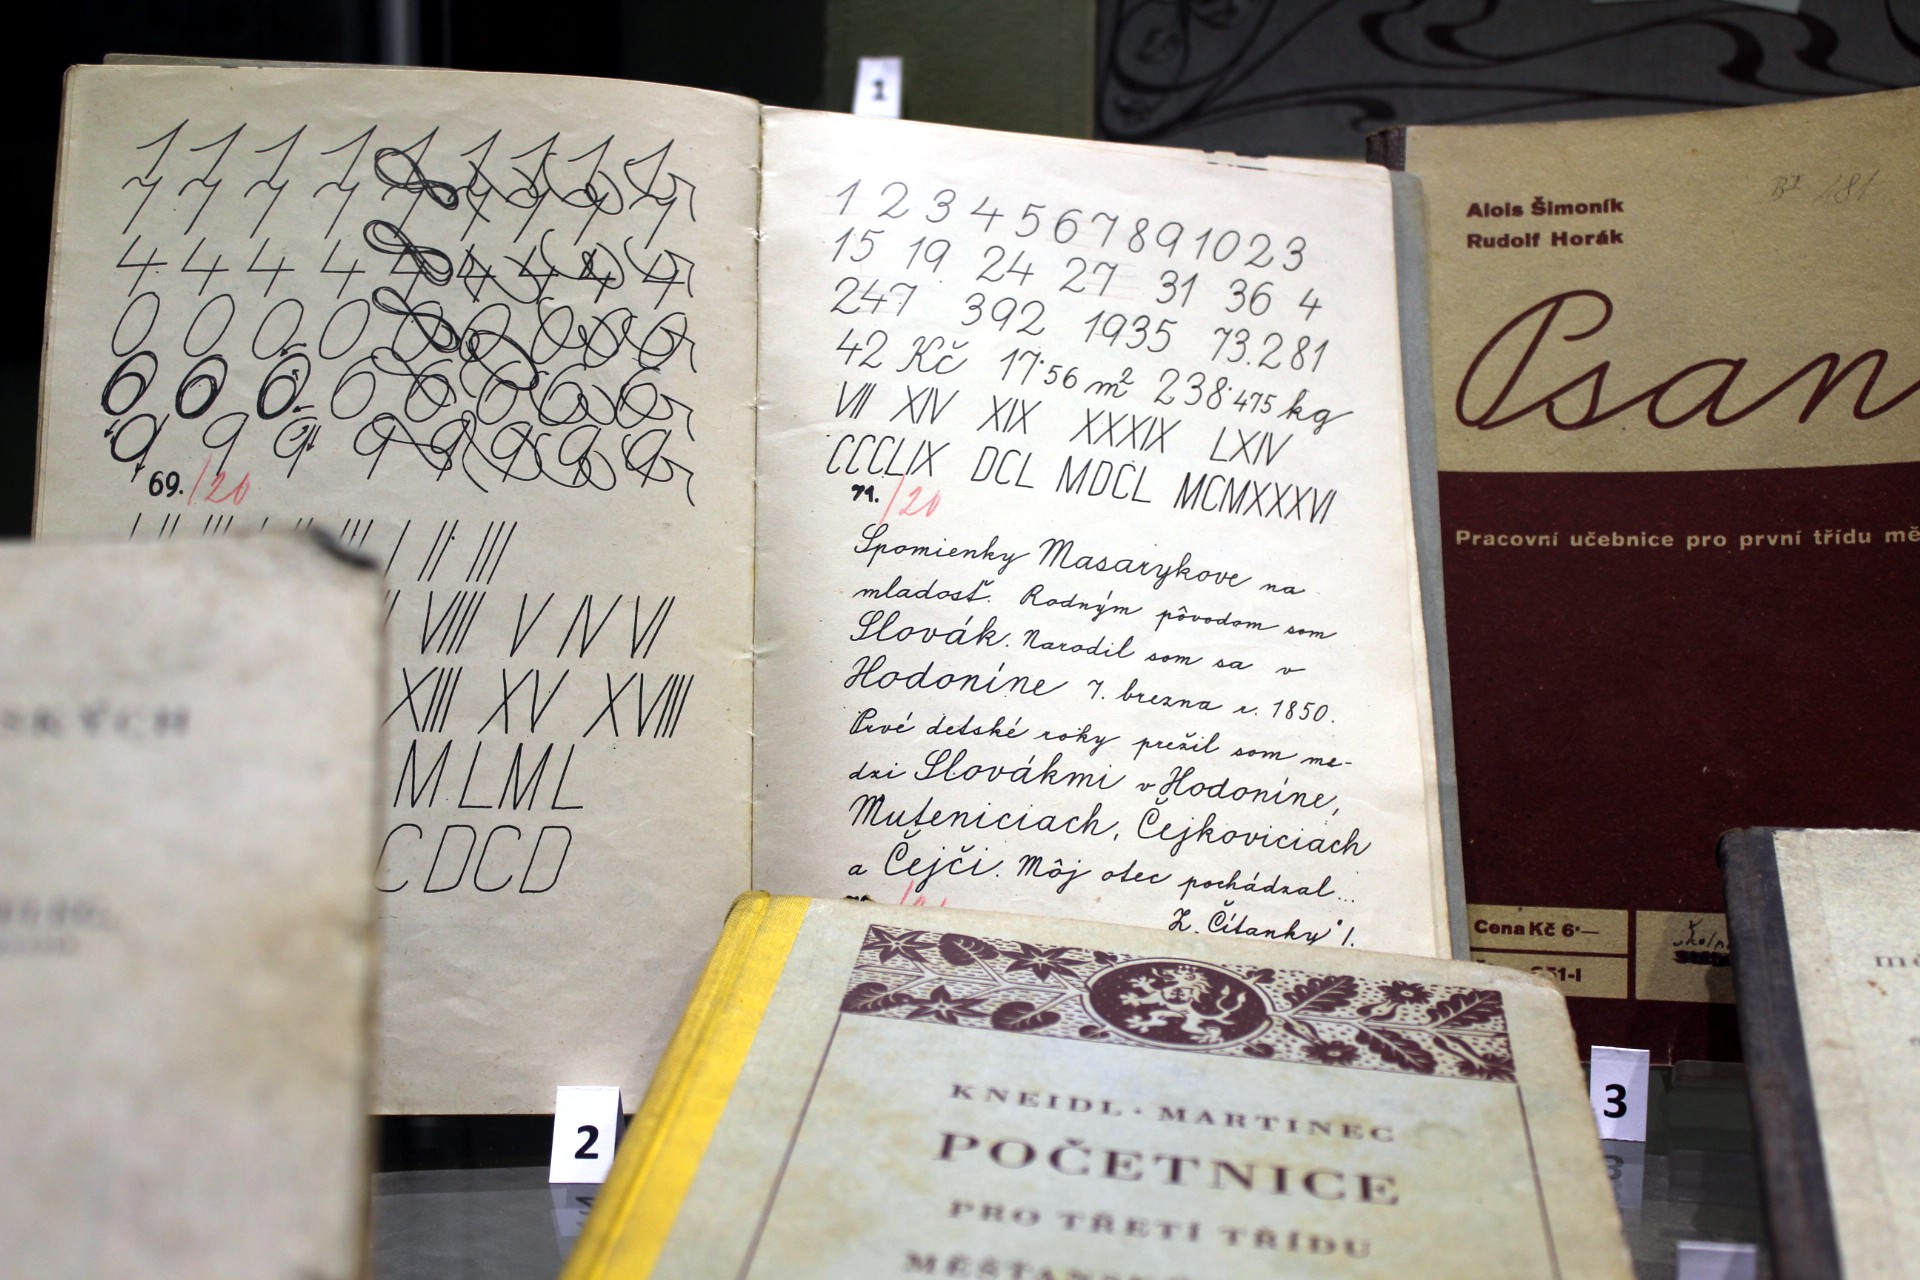 1
1 1 1 1 1 1 1 1 1
7 7 7 7 7 7 7 7 7
4 4 4 4 4 4 4 4 4
0 0 0 0 0 0 0 0 0
6 6 6 6 6 6 6 6 6
9 9 9 9 9 9 9 9 9
69. /20
I II III I II III I II III
VIII V IV VI
XIII XV XVIII
M L M L
C D C D
1 2 3 4 5 6 7 8 9 10 2 3
15 19 24 27 31 36 4
247 392 1935 73.281
42 Kč 17·56 m² 238·475 kg
VII XIV XIX XXXIX LXIV
CCCLIX DCL MDCL MCMXXXVI
71. /20
Spomienky Masarykove na
mladosť. Rodným pôvodom som
Slovák. Narodil som sa v
Hodoníne 7. brezna r. 1850.
Prvé detské roky prežil som me-
dzi Slovákmi v Hodoníne,
Muteniciach, Čejkoviciach
a Čejči. Môj otec pochádzal...
Z. Čítanky I.
Alois Šimoník
Rudolf Horák
Psan
Pracovní učebnice pro první třídu mě
Cena Kč 6·—
51-I
2
3
KNEIDL · MARTINEC
POČETNICE
PRO TŘETÍ TŘÍDU